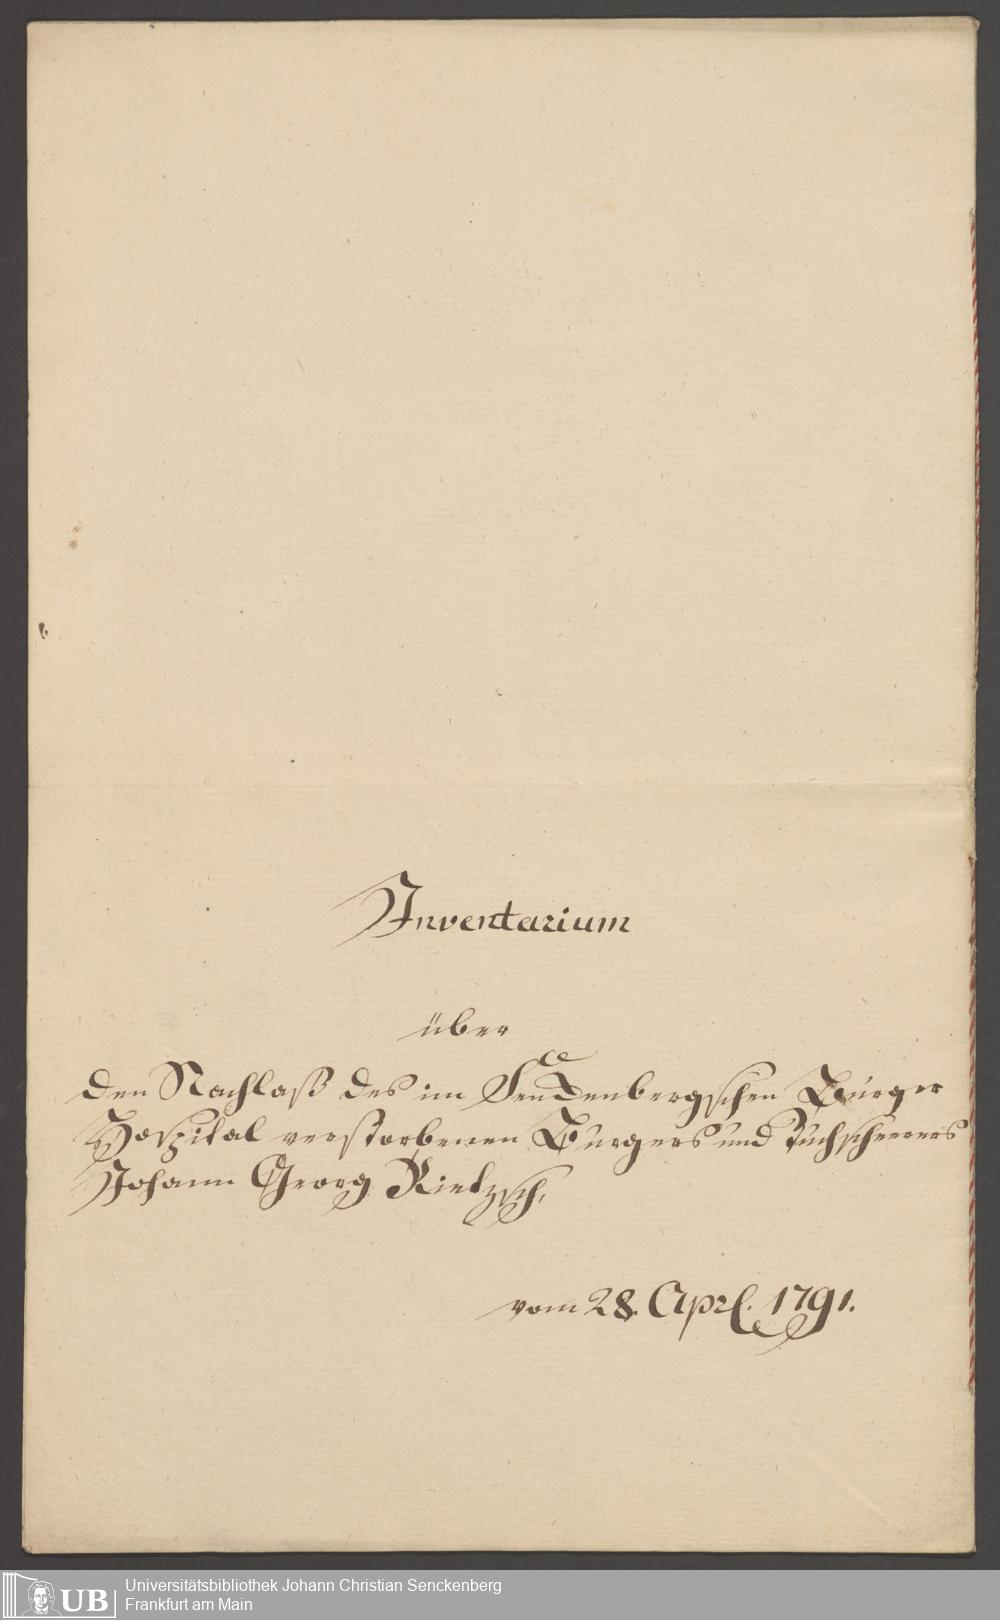 Inventarium
über
den Nachlaß des im Senckenbergschen Burger
Hospital verstorbenen Burgers und Tuchscheerers
Johann Georg Rietzsch,
vom 28. Aprl. 1791.
UB Universitätsbibliothek Johann Christian Senckenberg
Frankfurt am Main